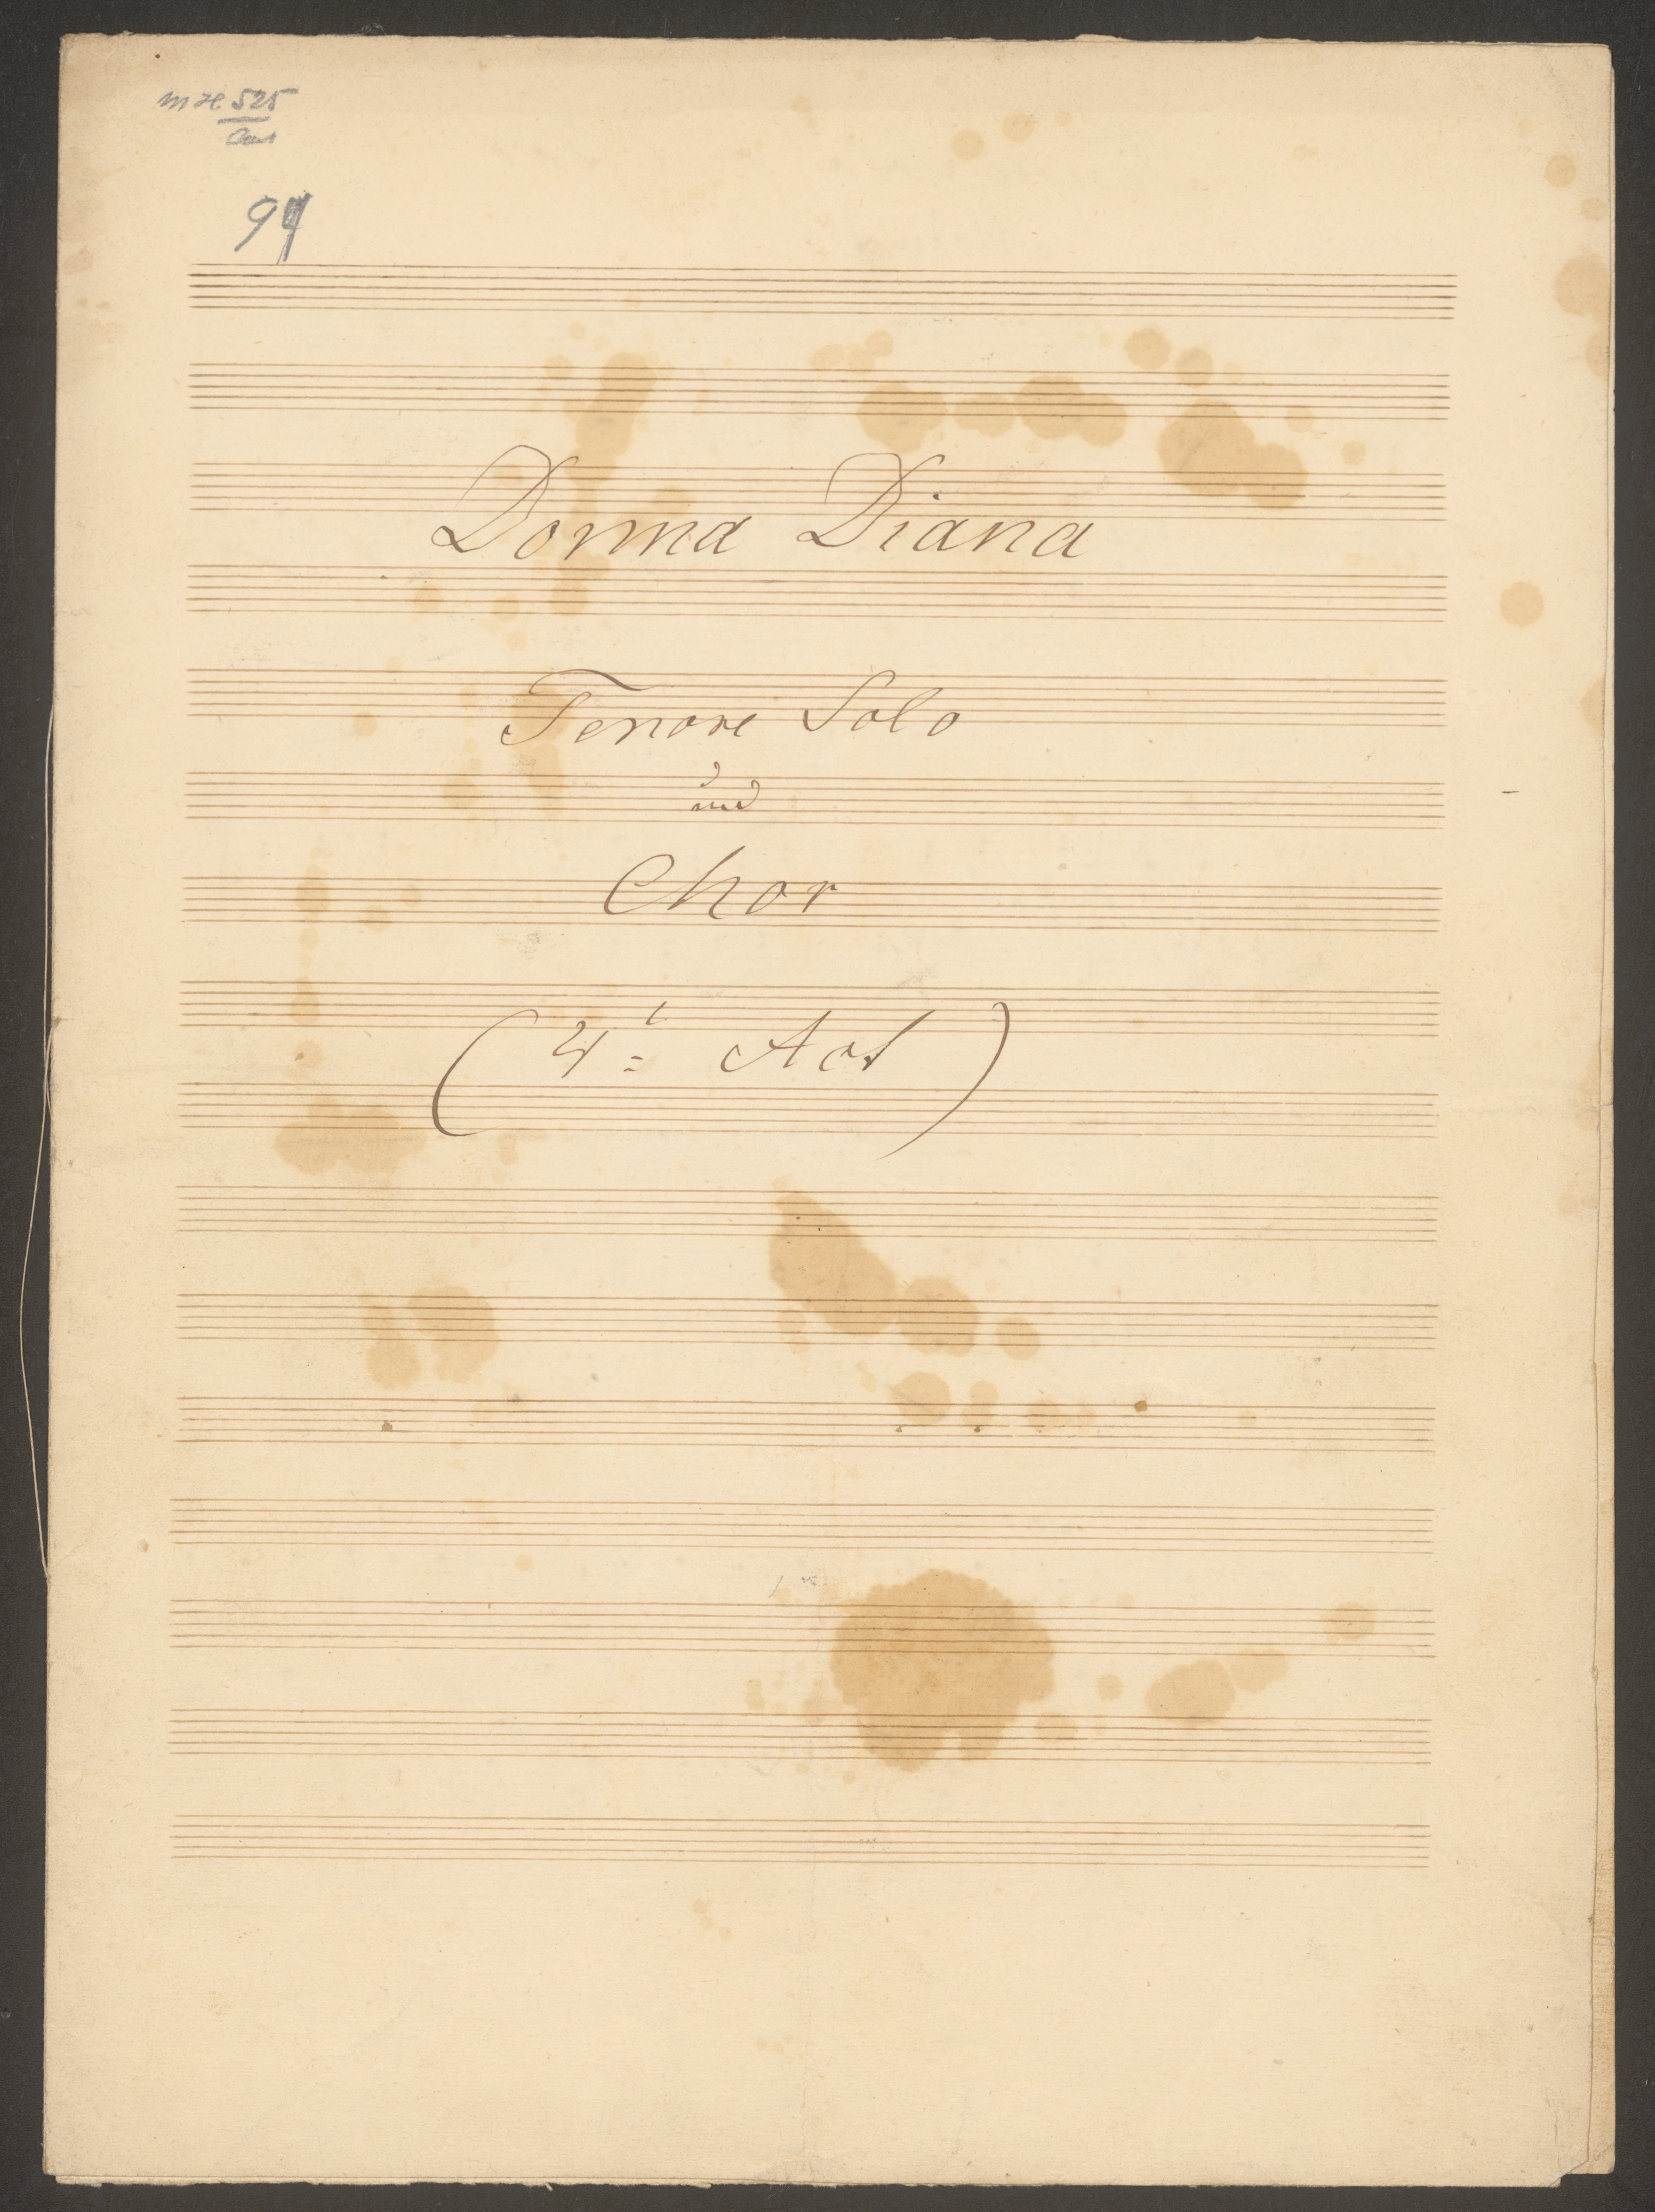 525
94
Donna Diana
Tenore Solo
und
Chor
(4t: Act)